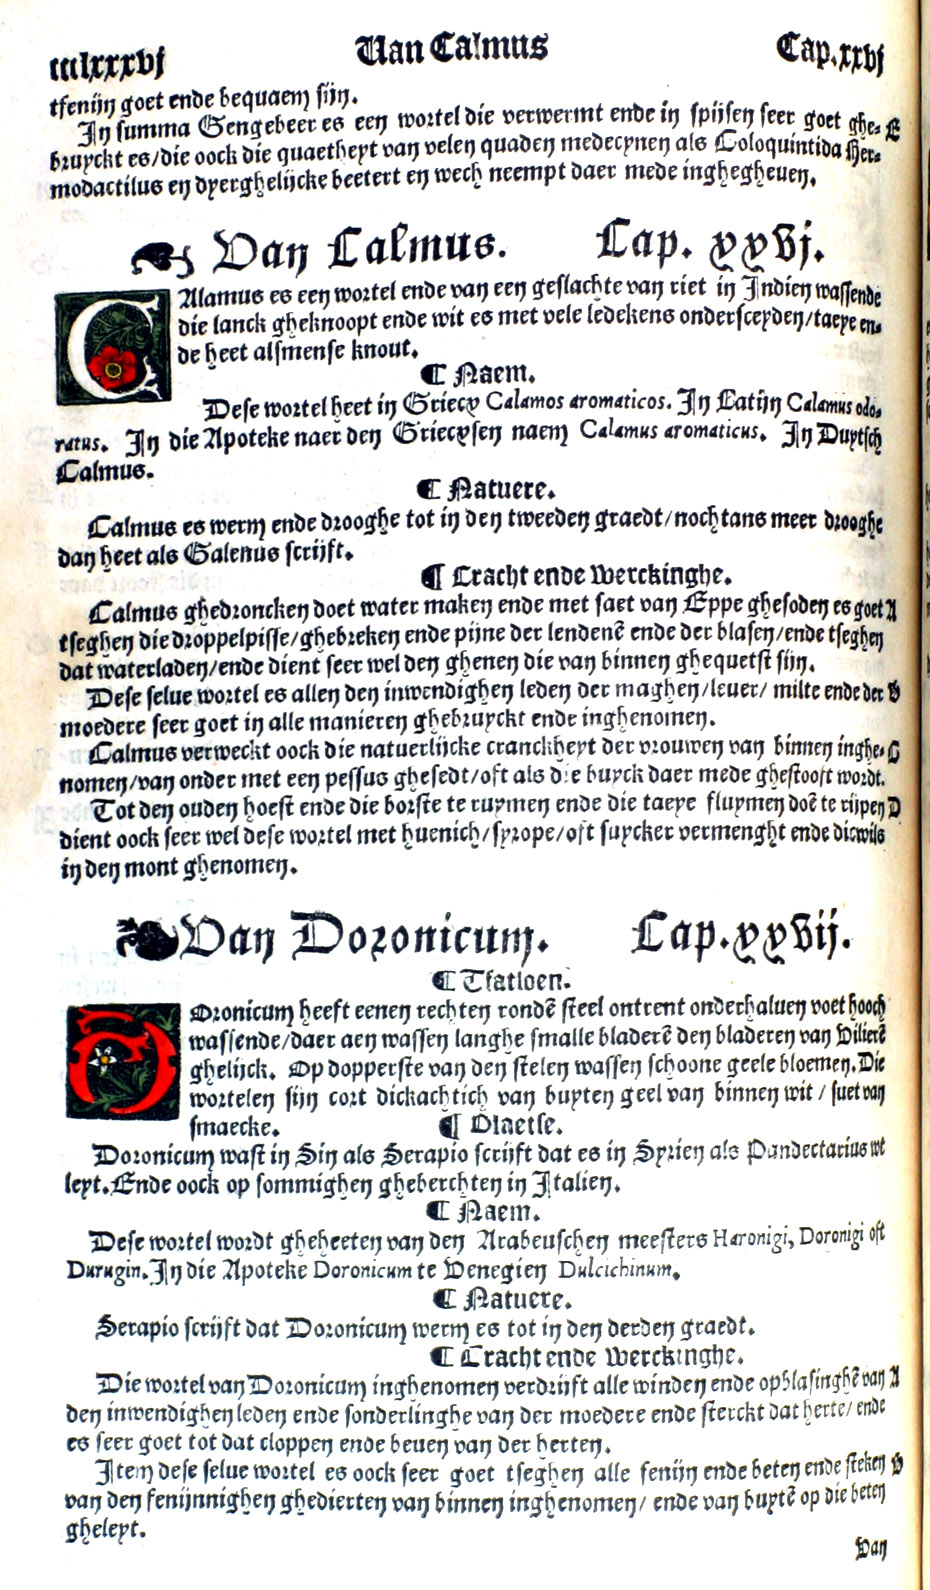 ccclxxxvj Van Calmus Cap.xxvj
tfenijn goet ende bequaem sijn.
In summa Gengebeer es een wortel die verwermt ende in spijsen seer goet ghe- E
bruyckt es/die oock die quaetheyt van velen quaden medecynen als Coloquintida Her-
modactilus en dyerghelijcke beetert en wech neempt daer mede inghegheuen.
Van Calmus. Cap. xxvj.
CAlamus es een wortel ende van een geslachte van riet in Indien wassende
die lanck gheknoopt ende wit es met vele ledekens ondersceyden/taeye en-
de heet alsmense knout.
¶ Naem.
Dese wortel heet in Griecx Calamos aromaticos. In Latijn Calamus odo-
ratus. In die Apoteke naer den Griecxsen naem Calamus aromaticus. In Duytsch
Calmus.
¶ Natuere.
Calmus es werm ende drooghe tot in den tweeden graedt/nochtans meer drooghe
dan heet als Galenus scrijft.
¶ Cracht ende Werckinghe.
Calmus ghedroncken doet water maken ende met saet van Eppe ghesoden es goet A
tseghen die droppelpisse/ghebreken ende pijne der lendenē ende der blasen/ende tseghen
dat waterladen/ende dient seer wel den ghenen die van binnen ghequetst sijn.
Dese selue wortel es allen den inwendighen leden der maghen/leuer/ milte ende der B
moedere seer goet in alle manieren ghebruyckt ende inghenomen.
Calmus verweckt oock die natuerlijcke cranckheyt der vrouwen van binnen inghe- C
nomen/van onder met een pessus ghesedt/oft als die buyck daer mede ghestooft wordt.
Tot den ouden hoest ende die borste te ruymen ende die taeye fluymen doē te rijpen D
dient oock seer wel dese wortel met huenich/syrope/oft suycker vermenght ende dicwils
in den mont ghenomen.
Van Doronicum. Cap.xxvij.
¶ Tfatsoen.
DOronicum heeft eenen rechten rondē steel ontrent onderhaluen voet hooch
wassende/daer aen wassen langhe smalle bladerē den bladeren van Vilierē
ghelijck. Op dopperste van den stelen wassen schoone geele bloemen. Die
wortelen sijn cort dickachtich van buyten geel van binnen wit / suet van
smaecke. ¶ Plaetse.
Doronicum wast in Sin als Serapio scrijft dat es in Syrien als Pandectarius wt
leyt. Ende oock op sommighen gheberchten in Italien.
¶ Naem.
Dese wortel wordt gheheeten van den Arabeuschen meesters Haronigi, Doronigi oft
Durugin. In die Apoteke Doronicum te Venegien Dulcichinum.
¶ Natuere.
Serapio scrijft dat Doronicum werm es tot in den derden graedt.
¶ Cracht ende Werckinghe.
Die wortel van Doronicum inghenomen verdrijft alle winden ende opblasinghē van A
den inwendighen leden ende sonderlinghe van der moedere ende sterckt dat herte/ ende
es seer goet tot dat cloppen ende beuen van der herten.
Item dese selue wortel es oock seer goet tseghen alle fenijn ende beten ende steken B
van den fenijnnighen ghedierten van binnen inghenomen/ ende van buytē op die beten
gheleyt.
Van